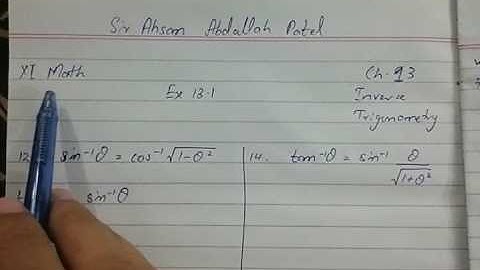 Sir Ahsan Abdallah Patel
XI Math
Ch. 13
Ex 13.1
Inverse
Trigunometry
12. sin⁻¹θ = cos⁻¹ √(1-θ²)
14. tan⁻¹θ = sin⁻¹ θ/√(1+θ²)
sin⁻¹θ